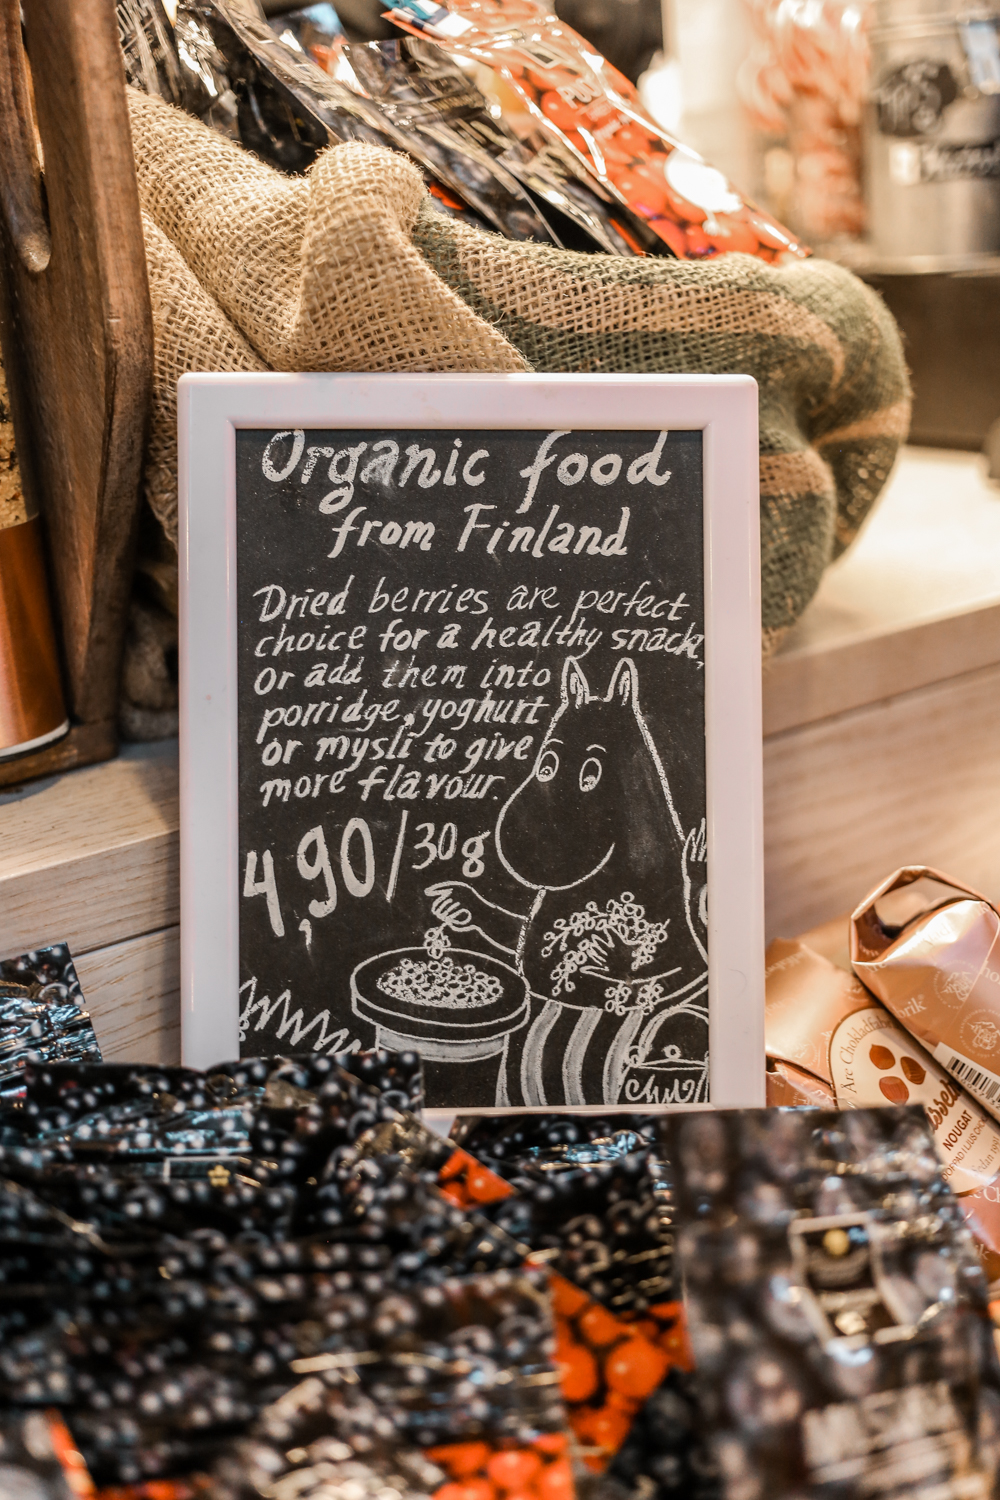 Organic food
from Finland
Dried berries are perfect
choice for a healthy snack,
Or add them into
porridge, yoghurt
or mysli to give
more flavour.
4,90/30g
Are Chokladfabrik
NOUGAT